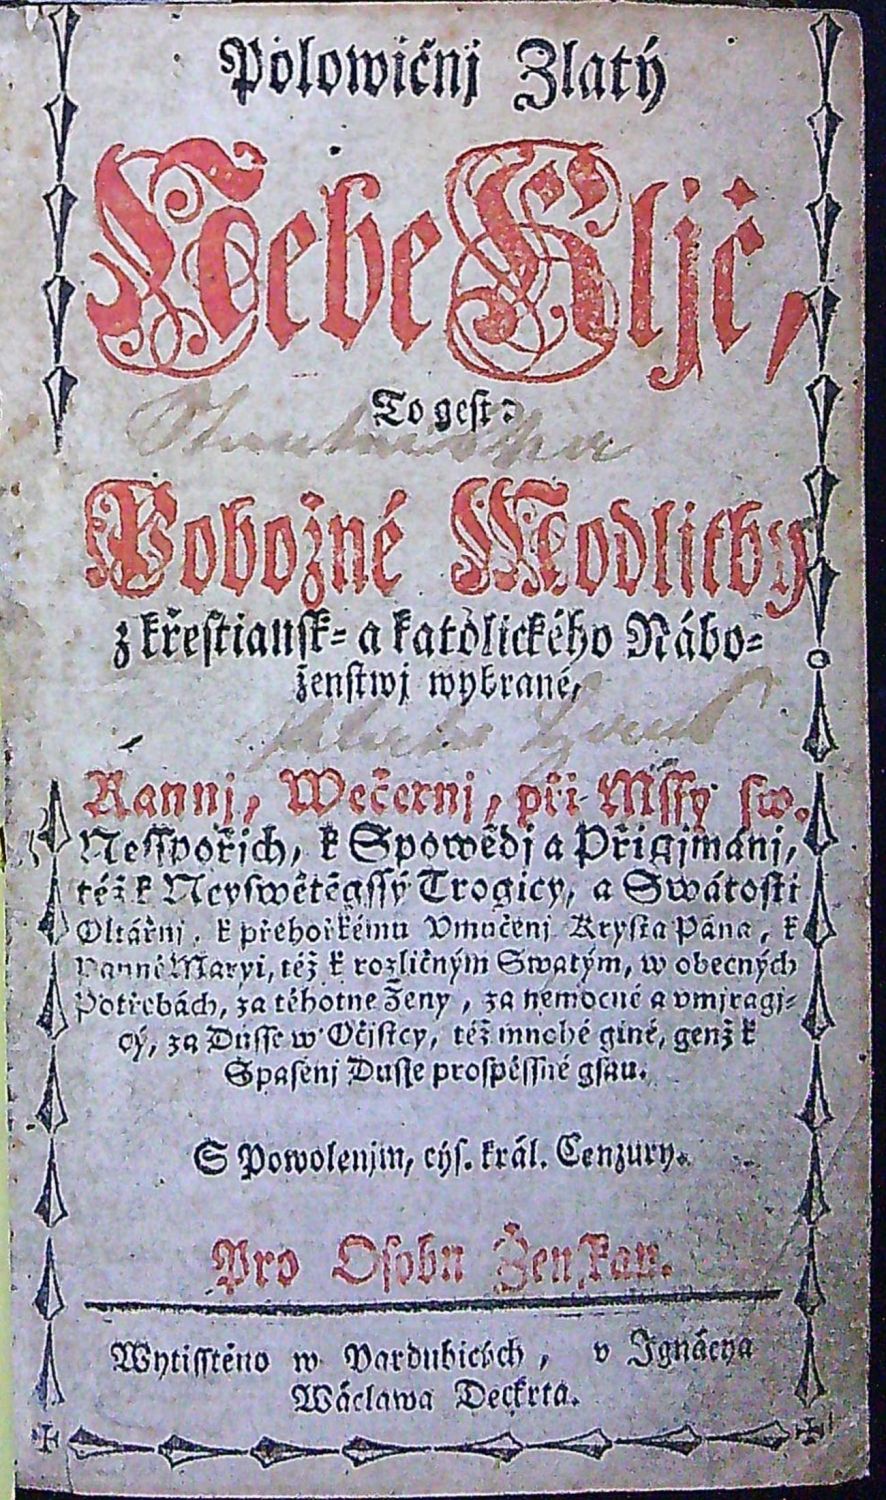 Polowičnj Zlatý
Nebe Kljč,
To gest:
Pobožné Modlitby
z křestiansk= a katolického Nábo=
ženstwj wybrané,
Rannj, Wečernj, při Mssy sw.
Nessporjch, k Spowědj a Přigjmánj,
též k Neyswětěgssý Trogicy, a Swátosti
Oltářnj, k přehořkému Vmučenj Krysta Pána, k
Panně Maryi, též k rozličným Swatým, w obecných
Potřebách, za těhotne Ženy, za nemocné a vmjragj=
cý, za Dusse w Očistcy, též mnohé giné, genž k
Spasenj Dusse prospěssné gsau.
S Powolenjm, cýs. král. Cenzury.
Pro Osobu Ženskau.
Wytisstěno w Pardubicých, v Ignácya
Wáclawa Deckrta.